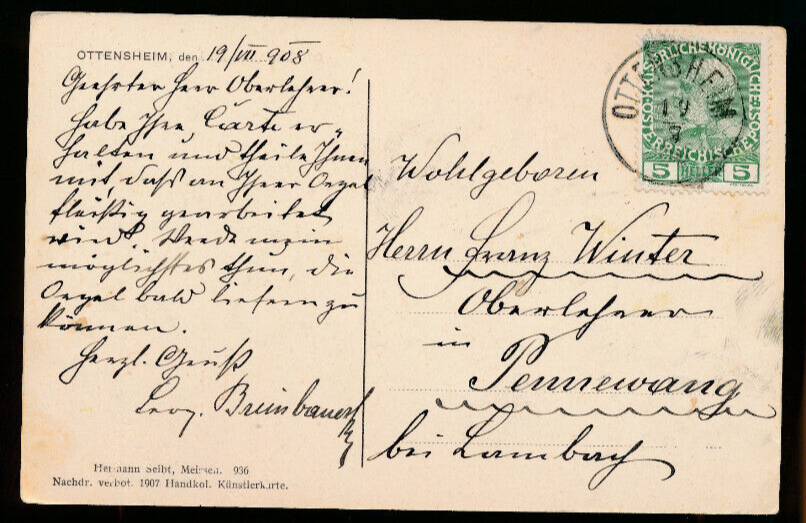 OTTENSHEIM, den 19/VII 908
Geehrter Herr Oberlehrer!
Habe Ihre Carte er-
halten und theile Ihnen
mit, daß an Ihrer Orgel
fleißig gearbeitet
wird. Werde mein
möglichstes thun, die
Orgel bald liefern zu
können.
Herzl. Gruß
Leop. Breinbauer
Hermann Seibt, Meissen. 936
Nachdr. verbot. 1907 Handkol. Künstlerkarte.
KAISERLICHE KÖNIGLICHE
ÖSTERREICHISCHE
5 HELLER 5
OTTENSHEIM
19
7
Wohlgeboren
Herrn Franz Winter
Oberlehrer
in
Pennewang
bei Lambach